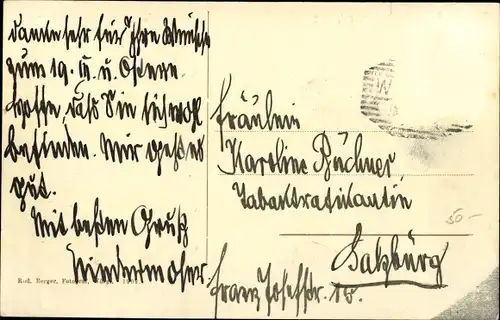 Danke sehr für Ihre Wünsche
zum 19. III. u. Ostern.
Hoffe, daß Sie sich wohl
befinden. Mir geht es
gut.
Mit besten Gruß
Niedermoser.
Fräulein
Karoline Büchner,
Tabaktrafikantin
Salzburg
Franz Josefstr. 18.
50-
Rud. Berger,